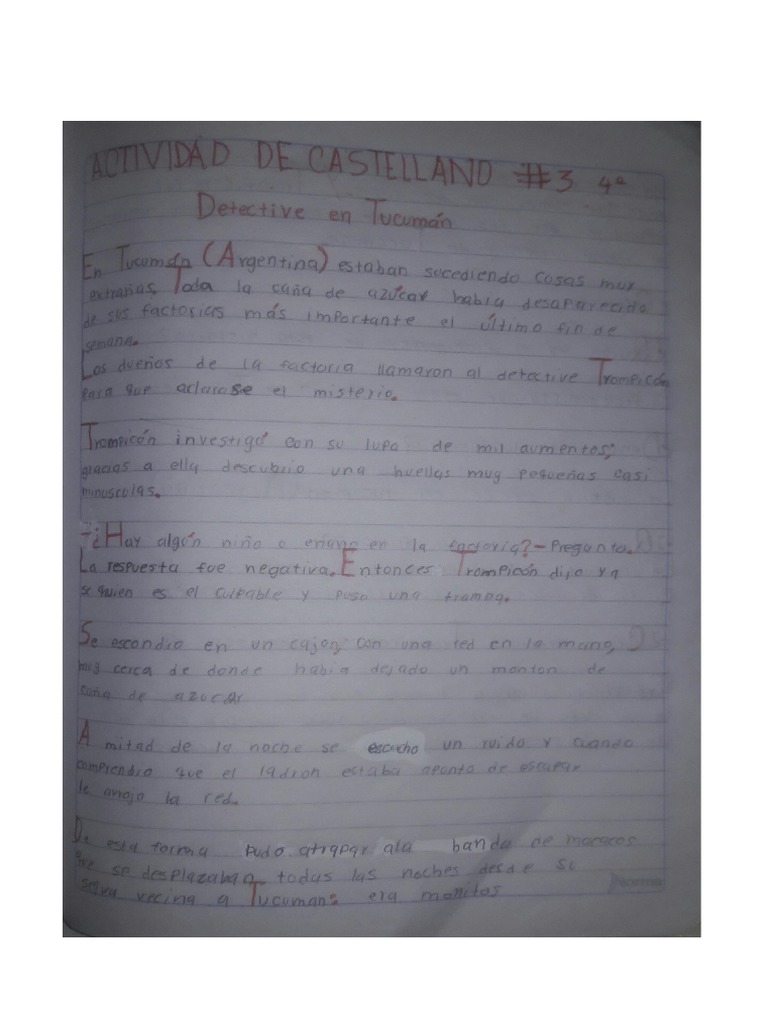 ACTIVIDAD DE CASTELLANO #3 4º
Detective en Tucumán
En Tucumán (Argentina) estaban sucediendo cosas muy
extrañas, Toda la caña de azúcar habia desaparecido
de sus factorias más importante el último fin de
semana.
Los dueños de la factoria llamaron al detective Trompicón
para que aclarase el misterio.
Trompicón investigó con su lupa de mil aumentos;
gracias a ella descubrio una huellas muy pequeñas casi
minusculas.
-¿Hay algún niño o enano en la factoria?- Pregunto.
La respuesta fue negativa. Entonces Trompicón dijo ya
se quien es el culpable y puso una trampa.
Se escondio en un cajon, con una red en la mano,
muy cerca de donde habia dejado un monton de
caña de azucar
A mitad de la noche se escucho un ruido y cuando
comprendio que el ladron estaba apunto de escapar
le arrojo la red.
De esta forma pudo atrapar ala banda de monos
que se desplazaban todas las noches desde su
selva vecina a Tucuman: era monitos
Norma